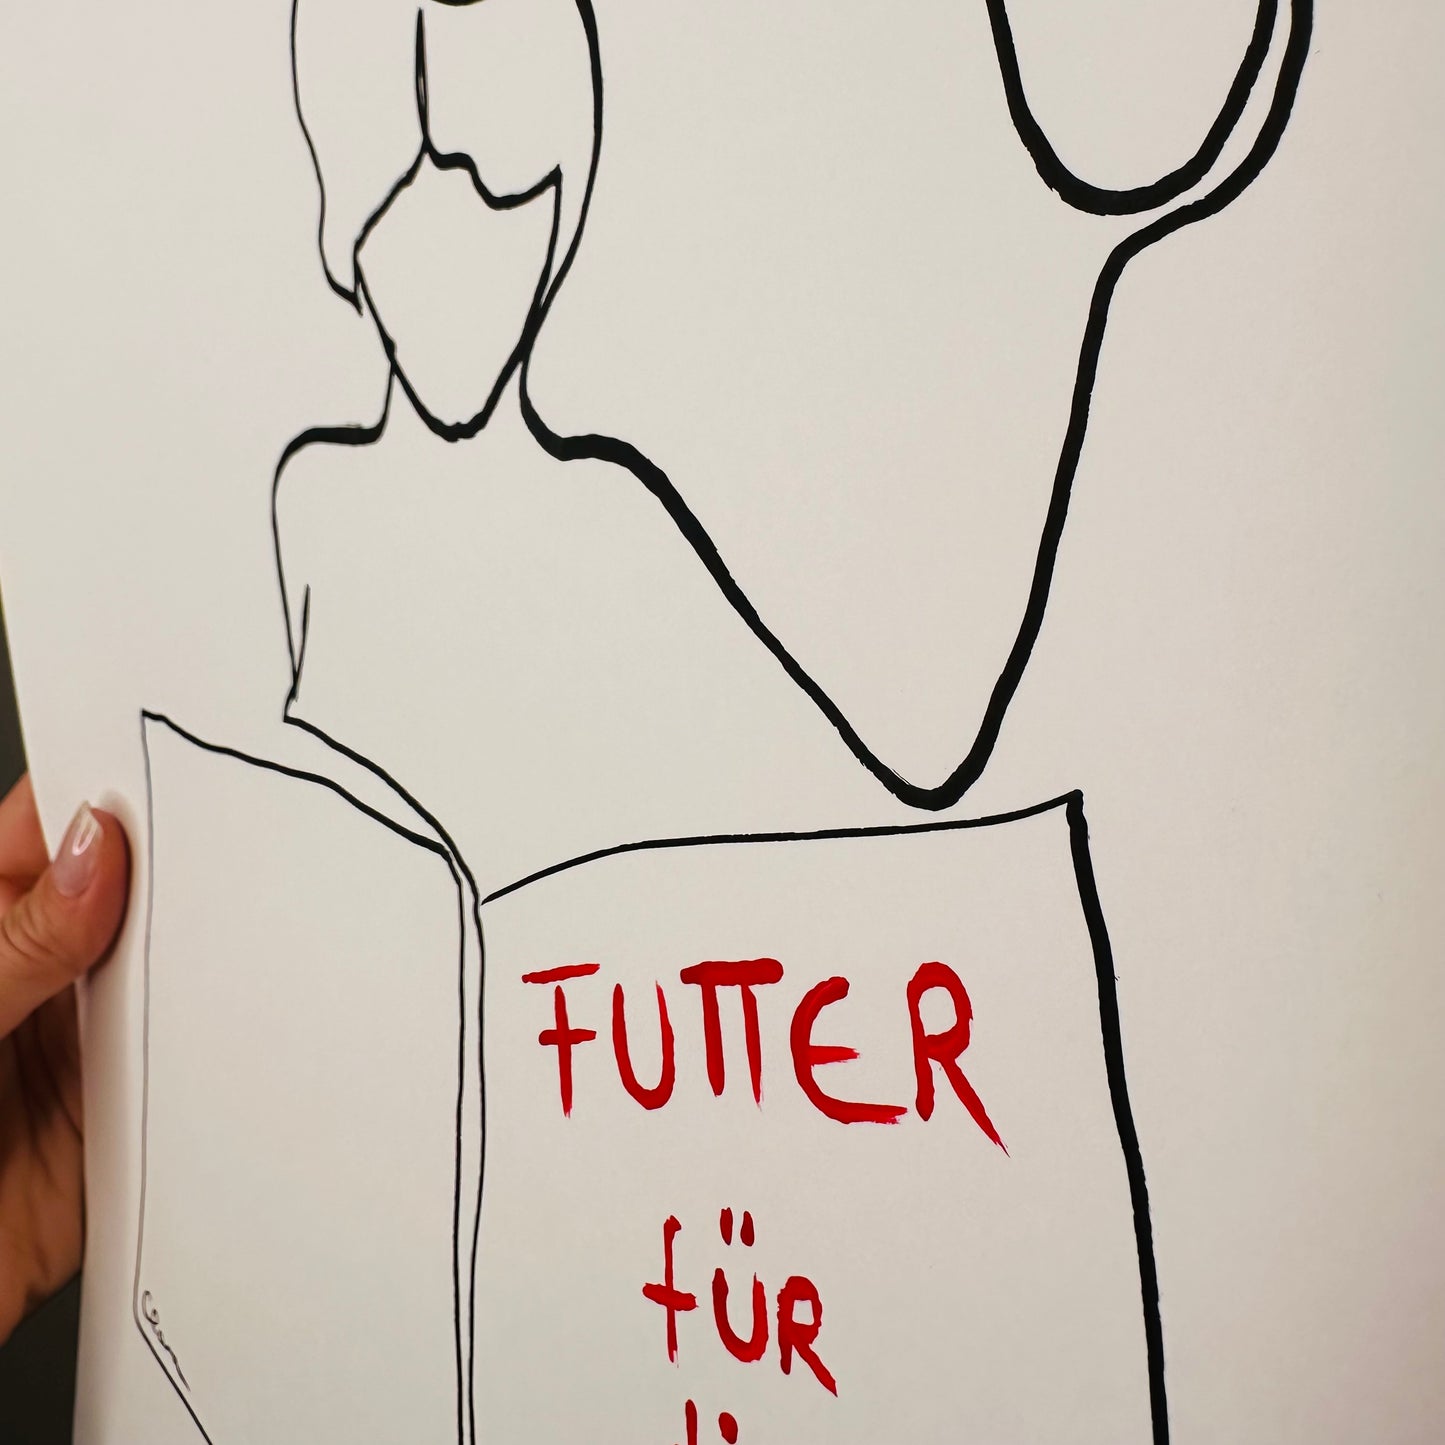 FUTTER
für